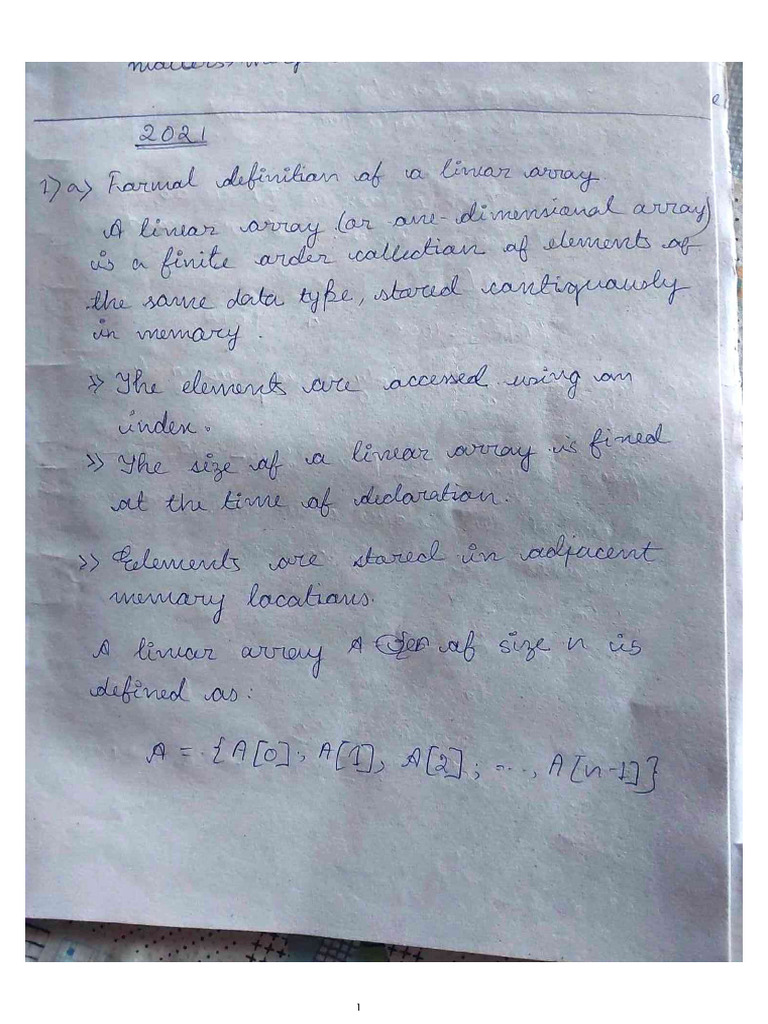 2021
1) a) Formal definition of a linear array.
A linear array (or one-dimensional array)
is a finite order collection of elements of
the same data type, stored contiguously
in memory.
>> The elements are accessed using an
index.
>> The size of a linear array is fixed
at the time of declaration.
>> Elements are stored in adjacent
memory locations.
A linear array A of size n is
defined as:
A = {A[0], A[1], A[2], ..., A[n-1]}
1